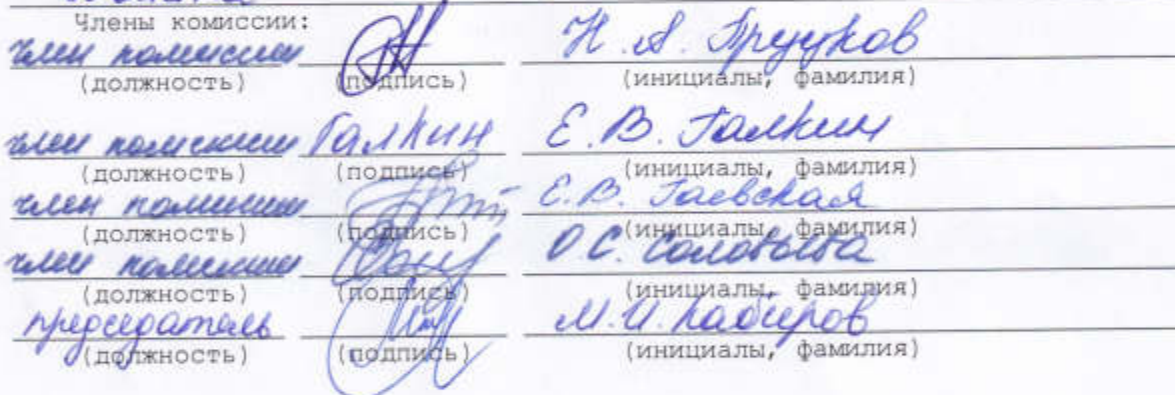 Члены комиссии:
член комиссии Н.А.
(должность) (подпись) (инициалы, фамилия)
член комиссии Галкин Е.В. Галкин
(должность) (подпись) (инициалы, фамилия)
член комиссии Е.В. Гаевская
(должность) (подпись) (инициалы, фамилия)
член комиссии О.С. Соловьева
(должность) (подпись) (инициалы, фамилия)
председатель М.И. Кабиров
(должность) (подпись) (инициалы, фамилия)